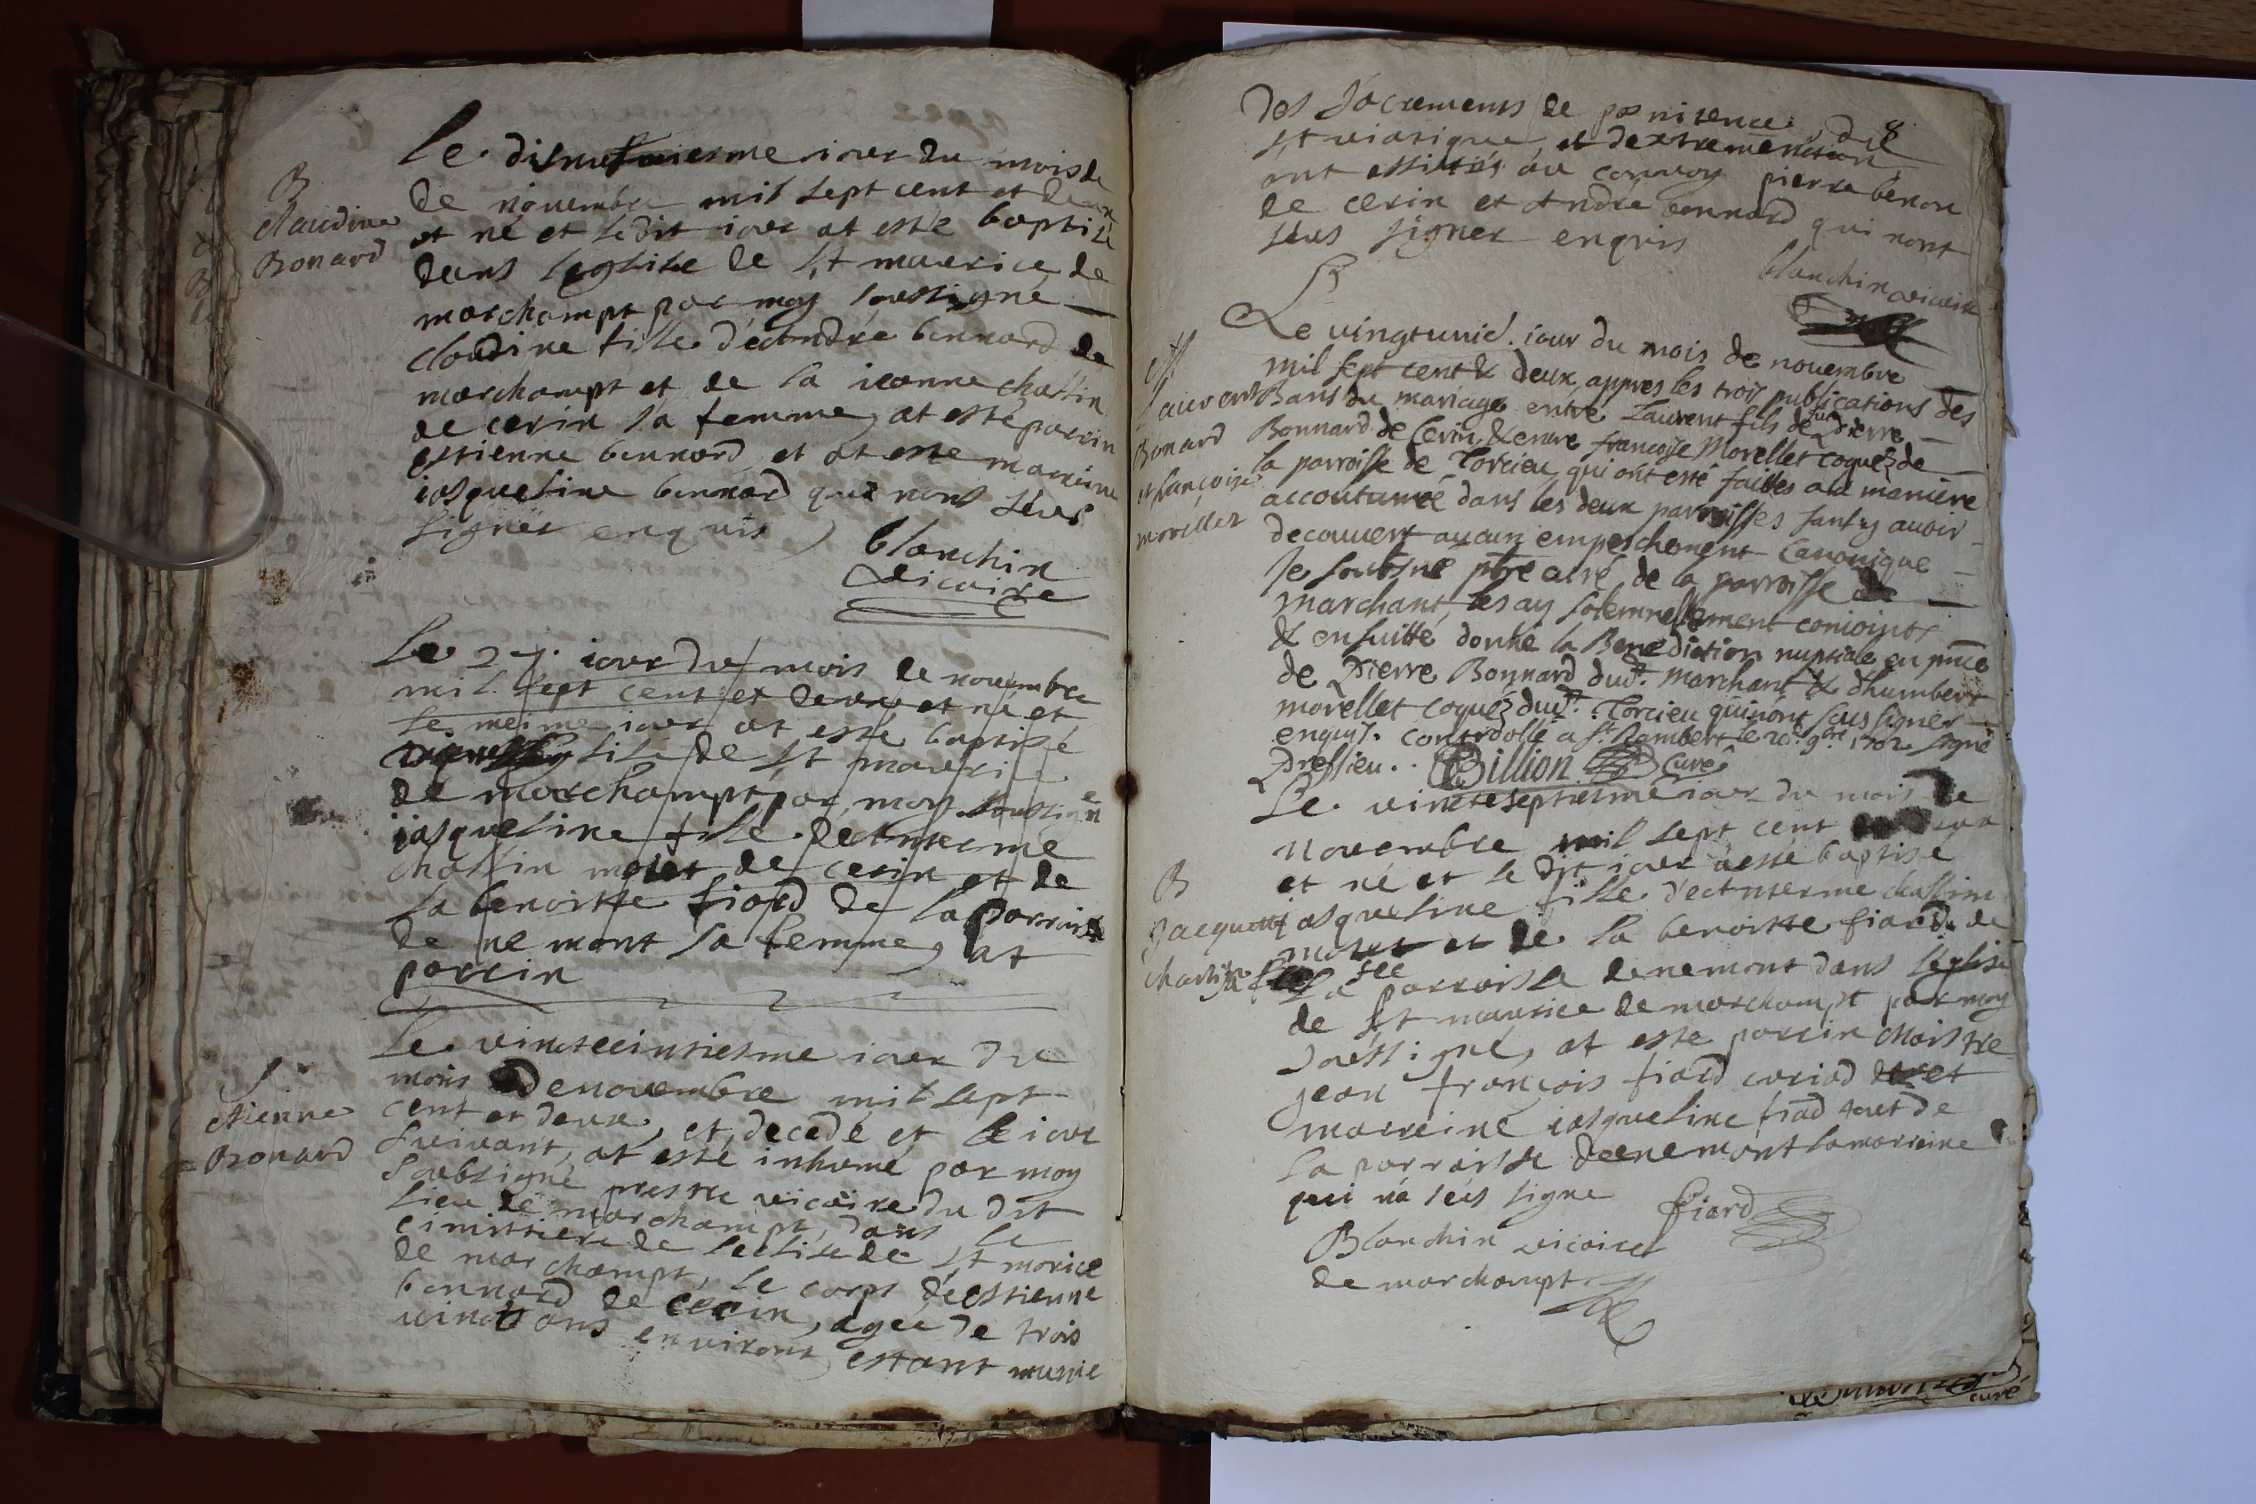 B
Claudine
Bonard
Le disneufviesme iour du mois de
de novembre mil sept cent et deux
et né et ledit iour at esté baptisé
dans leglise de St maurice de
marchampt par moy soussigné
cloudine fille d'éandré bonnard de
marchampt et de la ieanne chastin
de cerin sa femme, at esté parrin
estienne bonnard et at este marreine
iasqueline bonnard qui nont séus
signer enquis
blanchin
vicaire
Le 27. iour du mois de novembre
mil sept cent et deux et né et
le meime iour at esté baptisé
de St mauri
de marchampt par moy soussigné
iasqueline fille déantuerme
chastin molet de cerin et de
la benoitte fiard de la parroisse
de ne mont sa femme, at
parrin
S
etienne
Bonard
Le vintecintiesme iour du
mois de novembre mil sept
cent et deux, et decedé et le iour
suivant, at esté inhumé par moy
soubsigné prestre vicaire du dit
lieu de marchampt, dans le
cimittiere de leslise de St morice
de marchampt, le corps déestienne
bonnard de cerin, agée de trois
vincts ans environs estant munie
8
des sacrements de pœnitence, de
St viatique, et dextremenction
ont assistés au convoy pierre benon
de cerin et andré bonnard qui nont
séus signer enquis
blanchin vicaire
Laurent
Bonard
et françoise
morellet
Le vingtunié. iour du mois de novembre
mil sept cent & deux, appres les trois publications des
Bans du mariage entre Laurent fils de fut Pierre
Bonnard de Cerin, & entre françoise Morellet coquez de
la parroisse de Torcieu qui ont esté faittes a la maniere
accoutumée dans les deux parroisses sans y avoir
decouvert aucun empeschement Canonique
Je soubsné pbre curé de la parroisse de
marchant, les ay solemnellement conioints
& ensuitté donné la Benediction nuptiale en pnce
de Pierre Bonnard dud. marchant & dhumbert
morellet coquéz dud. Torcieu qui nont sceus signer
enquis. controollé a St Rambert le 20e. 9bre 1702. signé
Dressieu.. Billion Curé
B
Jacquem
chastin
Le. vinteseptiesme iour du mois de
novembre mil sept cent
et né et le dit iour a esté baptisé
iasqueline fille d'éantuerme chastin
molet et de la benoitte fiard. de
la parroisse de nemont dans leglise
de St maurice de marchampt par moy
soussigné, at esté parrin Maistre
jean françois fiard curiad et
marreine iasqueline fiad de
la parroisse de enemont la marreine
qui na séus signe fiard
Blanchin vicaire
de marchampt
curé